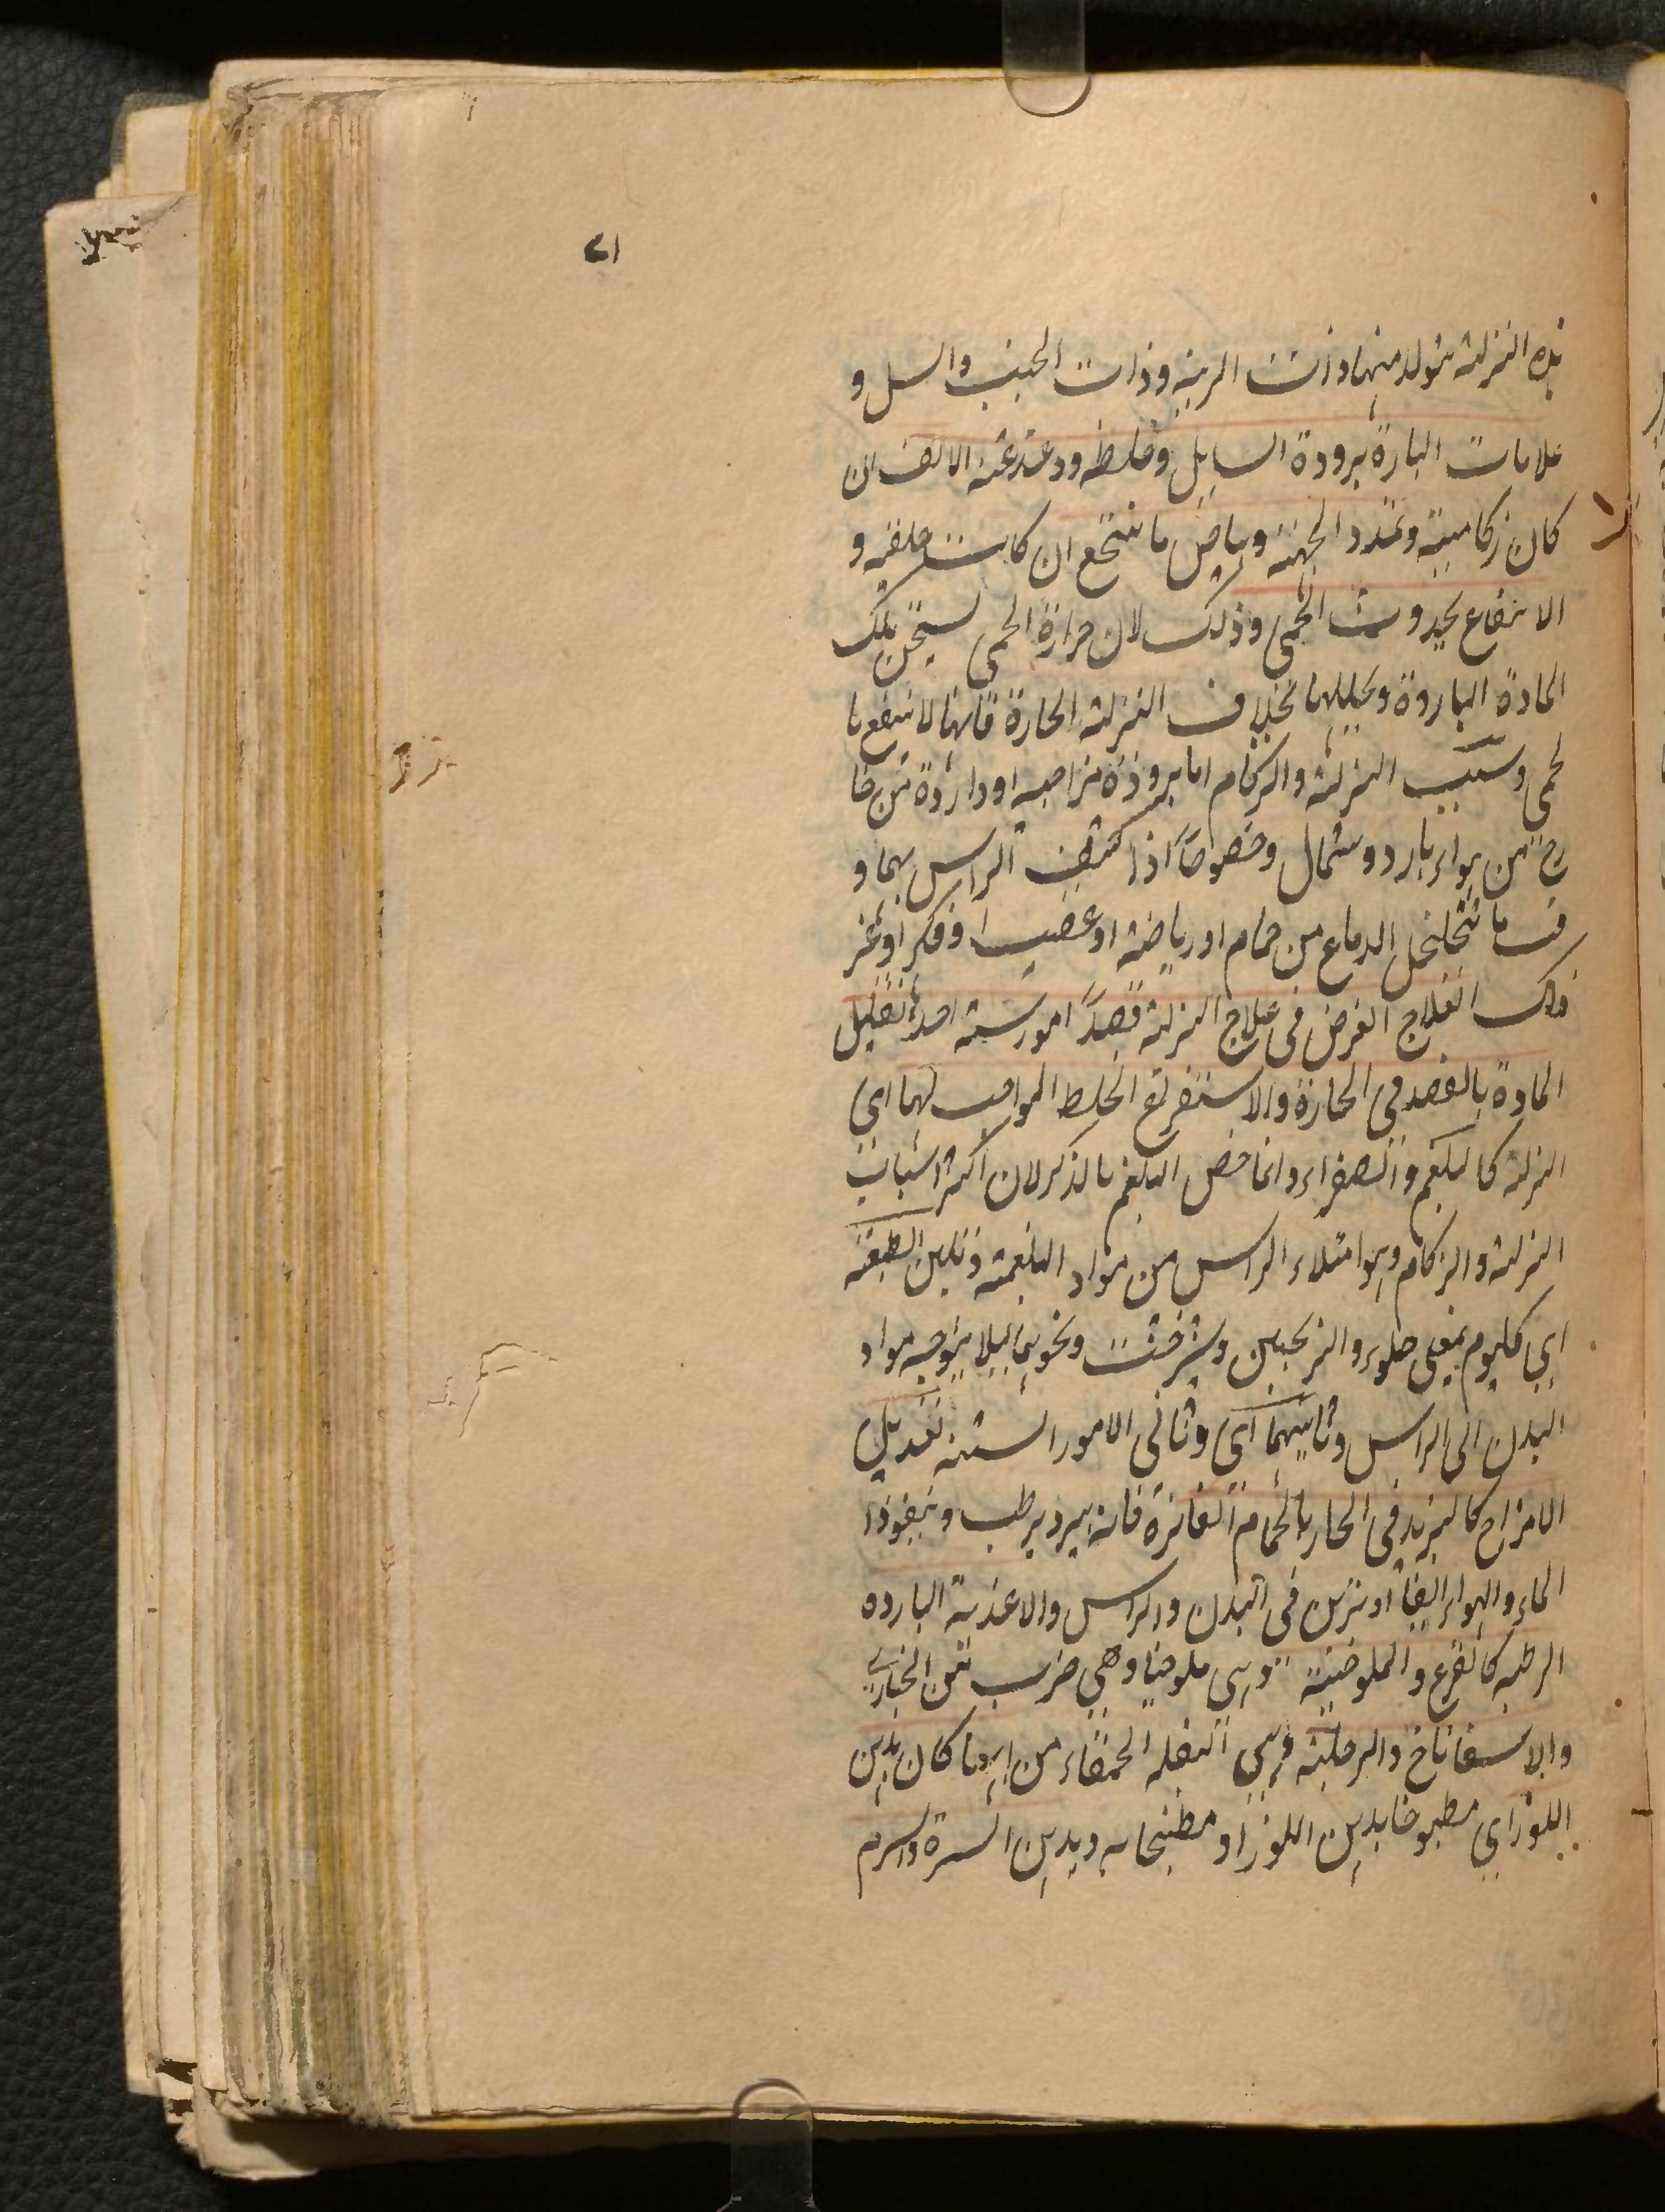 ۷۱
هذه النزلة يتولد منها ذات الرية وذات الجنب والسل و
علامات الباردة برودة السايل وغلظه ودغدغة الانف ان
كان زكامية وتمدد الجبهة وبياض ما ينتخع ان كانت حلقية و
الانتفاع بحدوث الحمى وذلك لان حرارة الحمى تسخن تلك
المادة الباردة وتحللها بخلاف النزلة الحارة فانها لا تنتفع با
لحمى وسبب النزلة والزكام اما برودة مزاجية او واردة من خا
رج من هواء بارد وشمال وخصوصاً اذا كشف الراس بهما و
قت ما تخلخل الدماغ من حمام او رياضة او غضب او فكر او غير
ذلك العلاج الغرض فى علاج النزلة قصداً امور ستة احدها تقليل
المادة بالفصد فى الحارة والاستفراغ الخلط الموجب لها اى
النزلة كالبلغم والصفراء وانما خص البلغم بالذكر لان اكثر اسباب
النزلة والزكام وهو امتلاء الراس من مواد البلغمية وتليين الطبيعة
اى كل يوم بمغلى حلوء والترنجبين وشيرخشت ونحوها ليلا يتوجه مواد
البدن الى الراس وثانيهما اى وثانى الامور الستة تعديل
الامزاج كالتبريد فى الحار بالحمام الفاترة فانه يبرد يرطب وينفوذ
الماء والهواء ايضا او يزين فى البدن والراس والاغذية البارده
الرطبه كالقرع والملوخية وهى ملوخيا وهي ضرب من الخبازى
والاسفاناخ والرجلة وهى البقلة الحمقاء من ايها كان بدهن
اللوز اى مطبوخا بدهن اللوز او مطبخابه وبدهن السرة والسرم